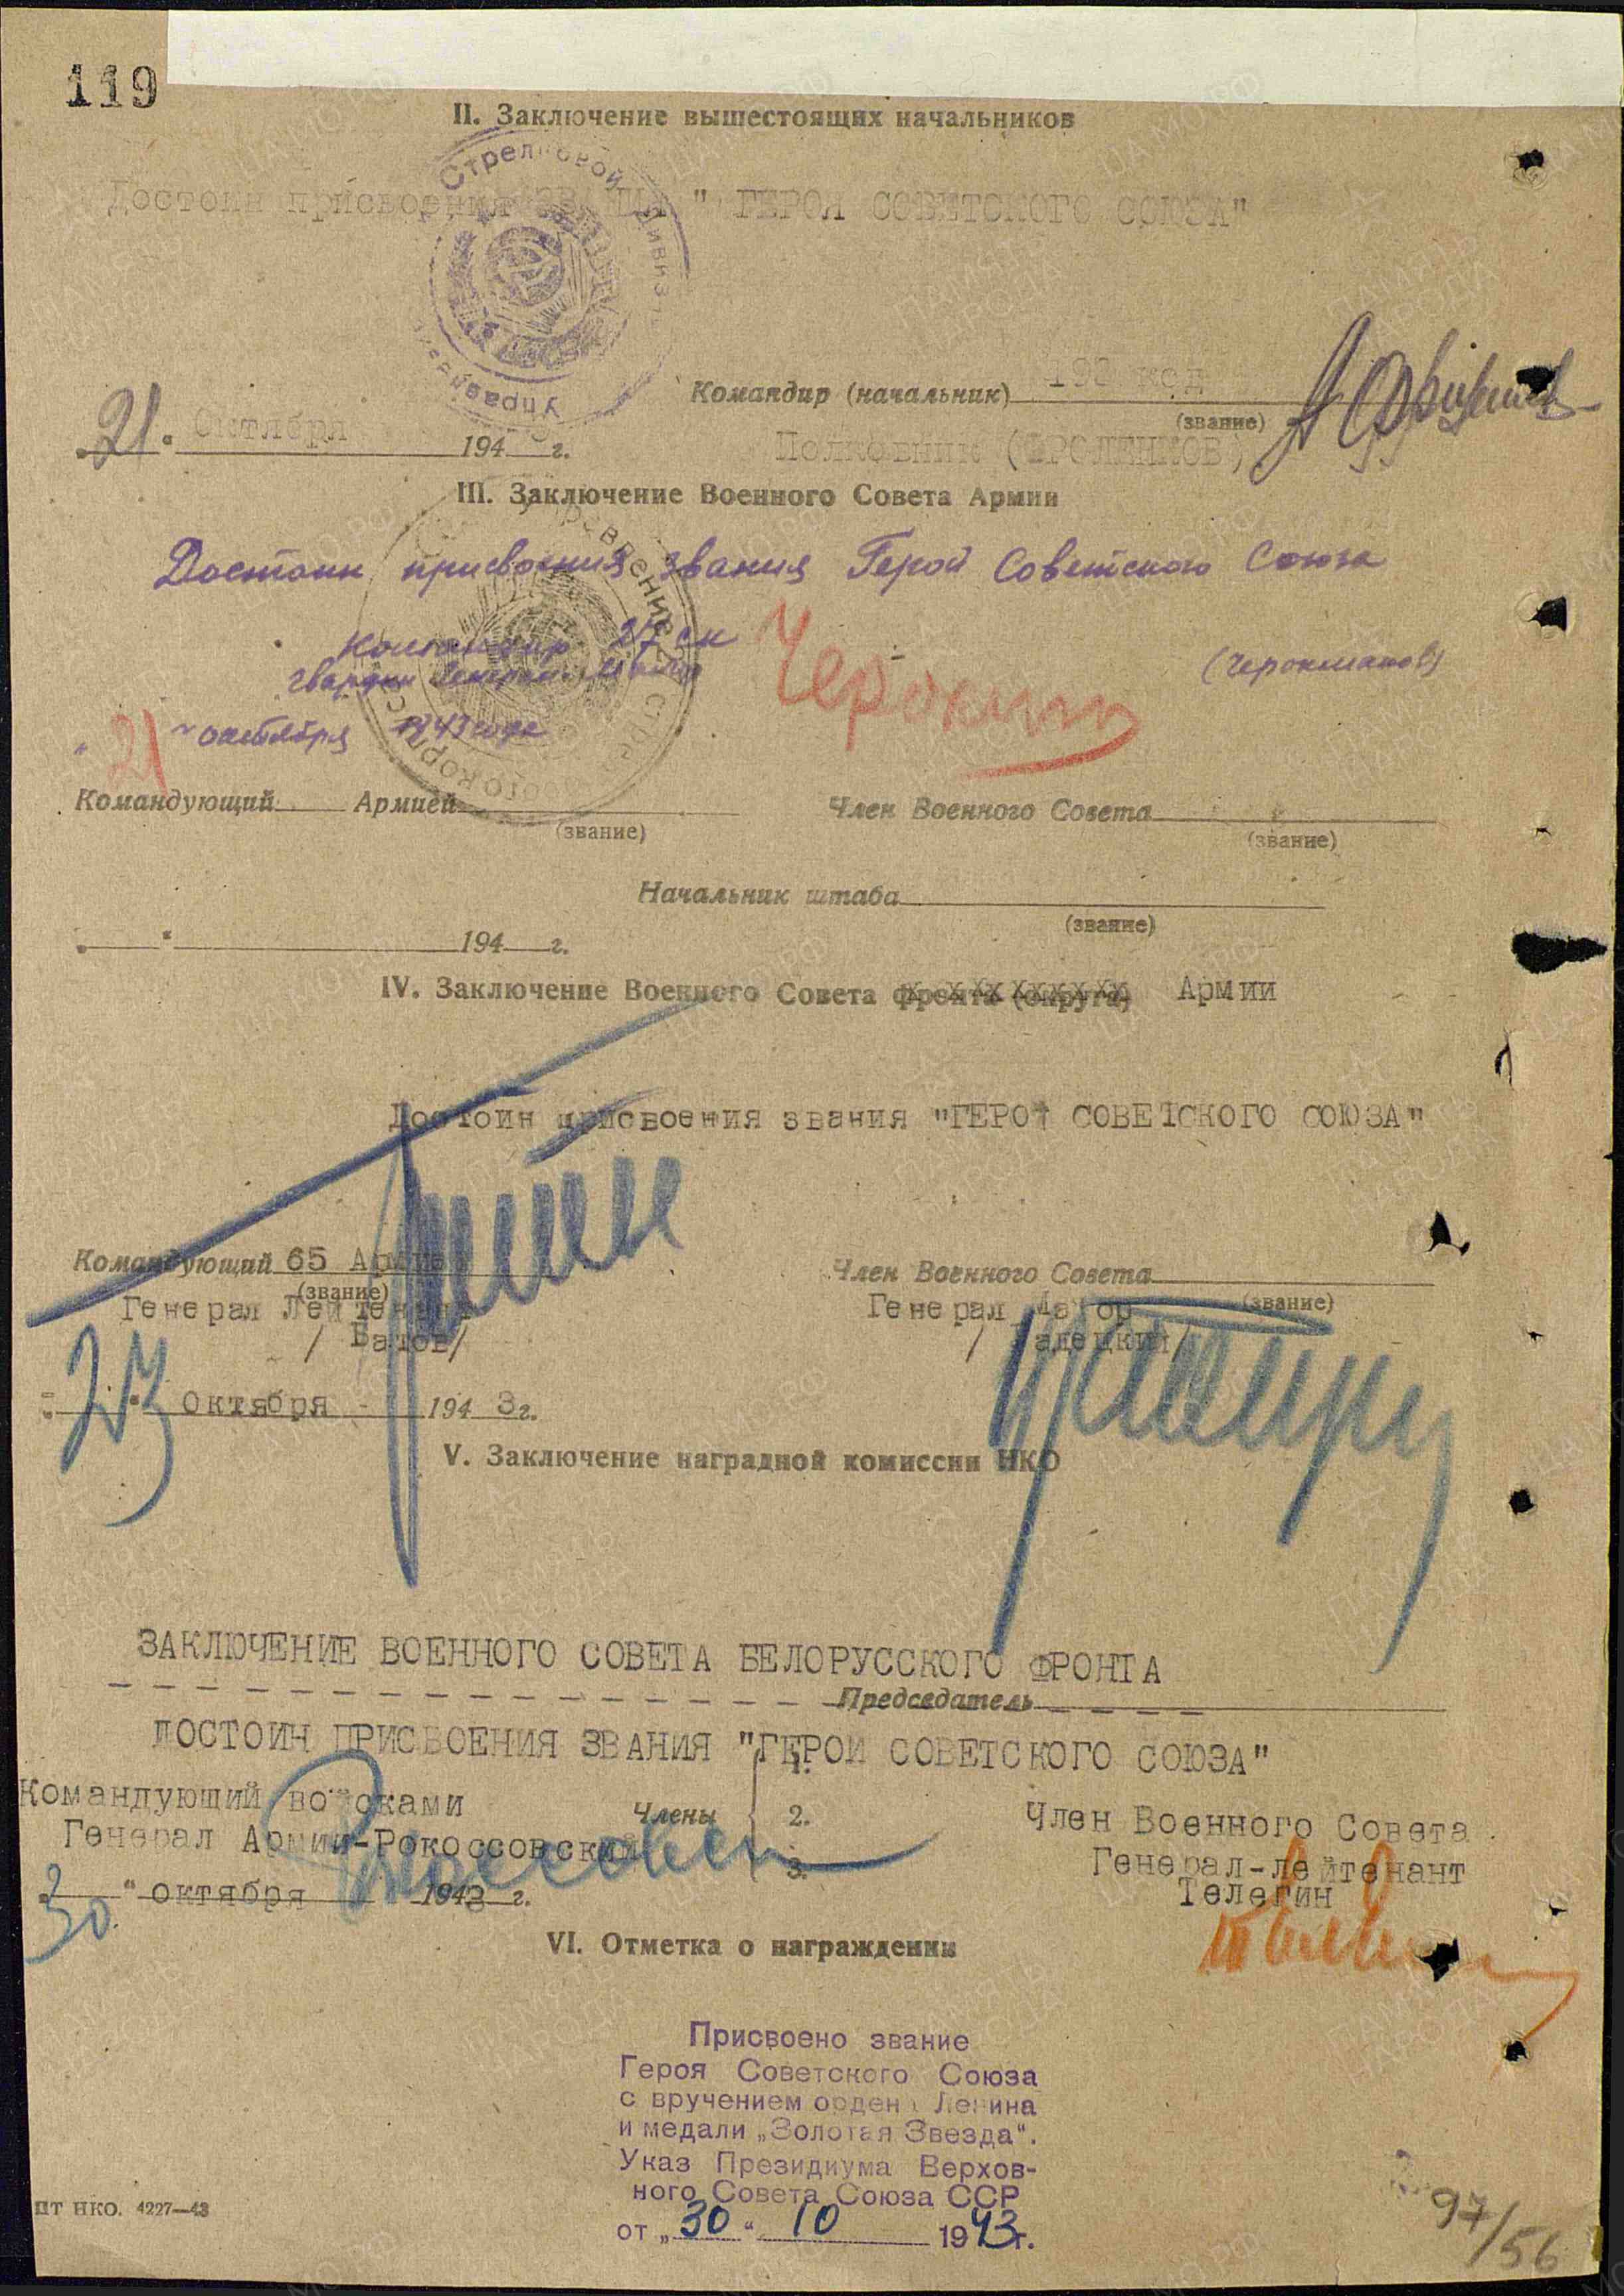 119
II. Заключение вышестоящих начальников
Стрелковой
Достоин присвоения " ГЕРОЯ СОВЕТСКОГО СОЮЗА"
Командир (начальник)
(звание)
21. Октября 194 г.
Полковник (ФРОЛЕНКОВ)
III. Заключение Военного Совета Армии
Достоин присвоения звания Герой Советского Союза
Командир 27 ск
гвардии Генерал-Майор
(Черокманов)
Черокман
" 21 " октября 1943 года
Командующий Армией
(звание)
Член Военного Совета
(звание)
Начальник штаба
(звание)
" " 194 г.
IV. Заключение Военного Совета фронта (округа) Армии
Достоин присвоения звания "ГЕРОЙ СОВЕТСКОГО СОЮЗА"
Командующий 65 Армией
(звание)
Генерал Лейтенант
/ Батов/
Член Военного Совета
(звание)
Генерал Майор
/ Радецкий/
23 Октября 1943г.
V. Заключение наградной комиссии НКО
ЗАКЛЮЧЕНИЕ ВОЕННОГО СОВЕТА БЕЛОРУССКОГО ФРОНТА
Председатель
ДОСТОИН ПРИСВОЕНИЯ ЗВАНИЯ "ГЕРОЙ СОВЕТСКОГО СОЮЗА"
Командующий войсками
Генерал Армии-Рокоссовский
Члены
1.
2.
3.
Член Военного Совета
Генерал-лейтенант
Телегин
30 " октября 1943 г.
VI. Отметка о награждении
Присвоено звание
Героя Советского Союза
с вручением орден Ленина
и медали „Золотая Звезда".
Указ Президиума Верхов-
ного Совета Союза ССР
от „30" 10 1943г.
ПТ НКО. 4227—43
97/56